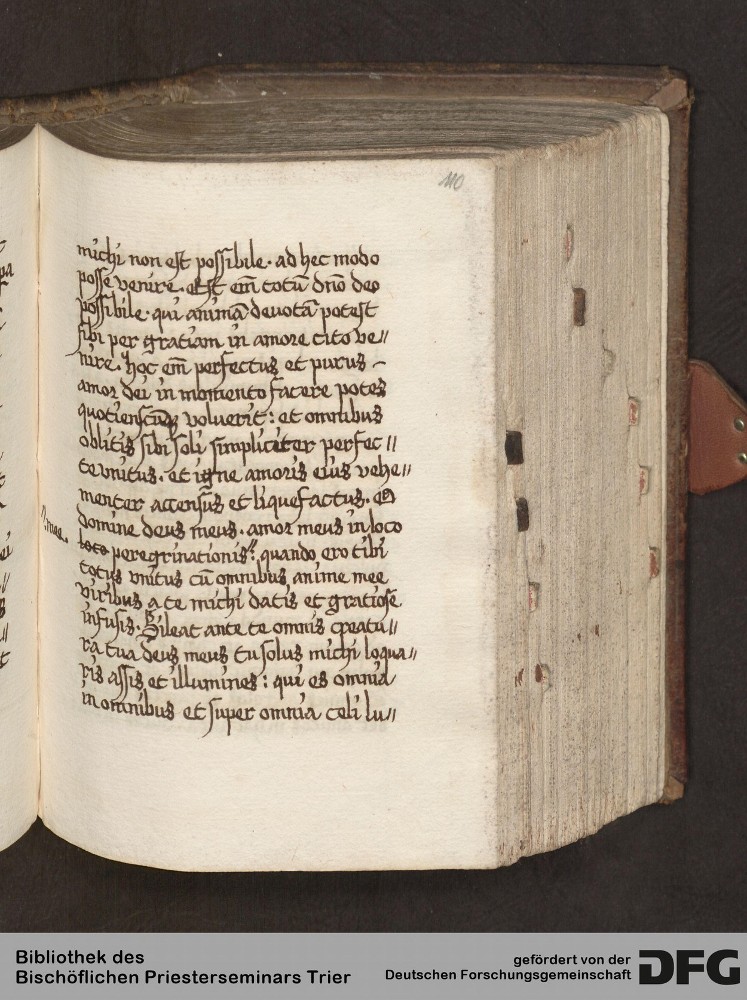 110
michi non est possibile. ad hec modo
posse venire. Est em̄ totū dn̄o deo
possibile. qui animā deuotā potest
sibi per gratiam in amore cito ve//
nire. hoc em̄ perfectus et purus ~
amor dei in momento facere potes
quotienscūq; voluerit: et omnibus
oblitis sibi soli simpliciter perfec//
te vnitus. et igne amoris eius vehe//
menter accensus et liquefactus. O
domine deus meus. amor meus in loco
loco peregrinationis mee. : quando ero tibi
totus vnitus cū omnibus anime mee
viribus a te michi datis et gratiose
infusis. Sileat ante te omnis creatu//
ra tua deus meus tu solus michi loqua//
ris assis et illumines: qui es omnia
in omnibus et super omnia celi lu//
Bibliothek des
Bischöflichen Priesterseminars Trier
gefördert von der
Deutschen Forschungsgemeinschaft
DFG